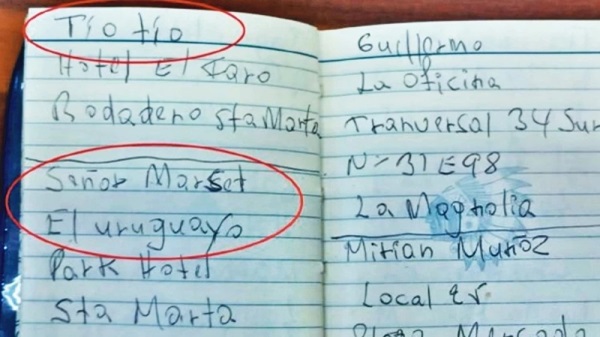 Tio tio
Hotel El Faro
Rodadero Sta Marta
Señor Marset
El uruguayo
Park Hotel
Sta Marta
Guillermo
La Oficina
Tranversal 34 Sur
N= 31 E 98
La Magnolia
Mirian Muñoz
Local
Plaza Mercado